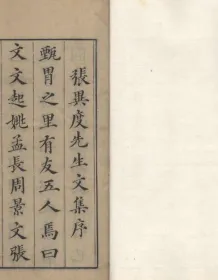 張異度先生文集序
甄胄之里有友五人焉曰
文文起姚孟長周景文張